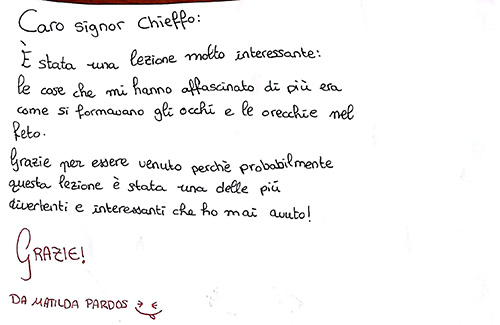 Caro signor Chieffo:
È stata una lezione molto interessante:
le cose che mi hanno affascinato di più era
come si formavano gli occhi e le orecchie nel
feto.
Grazie per essere venuto perchè probabilmente
questa lezione è stata una delle più
divertenti e interessanti che ho mai avuto!
GRAZIE!
DA MATILDA PARDOS